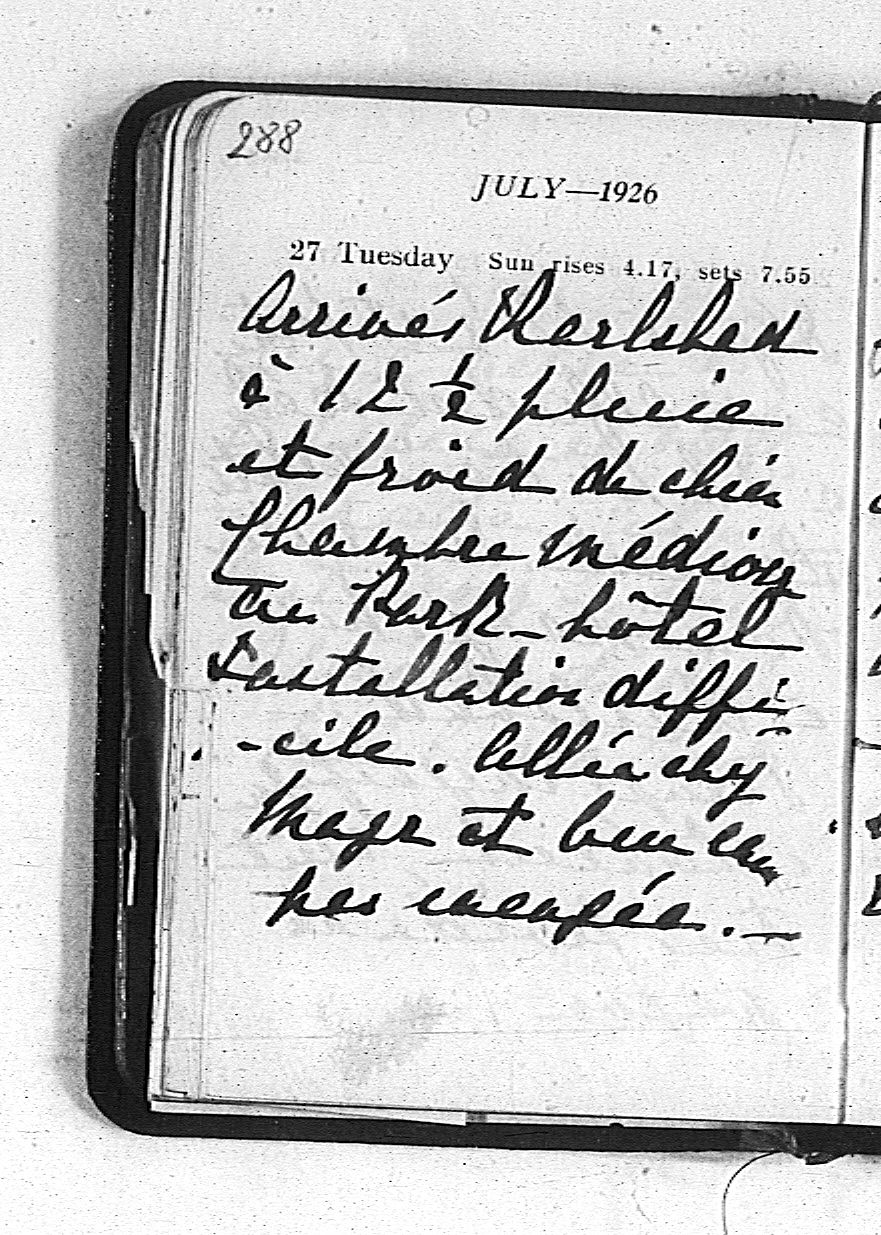 288
JULY—1926
27 Tuesday Sun rises 4.17, sets 7.55
Arrivés Karlsbad
à 12 ½ pluie
et froid de chien
Chambre médiocre
au Park-hôtel
Installation diffi-
-cile. Allée chez
Mayr et
pas .—